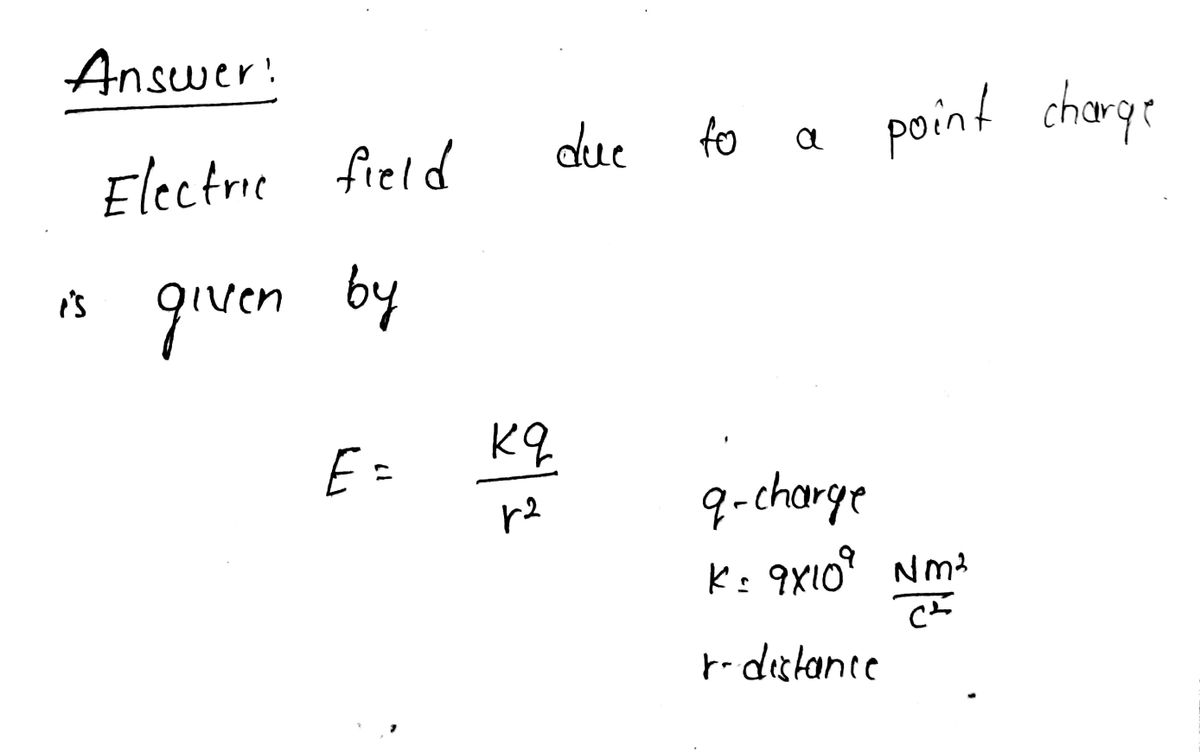 Answer:
Electric field due to a point charge
is given by
E = Kq / r²
q - charge
K = 9×10⁹ Nm² / C²
r - distance